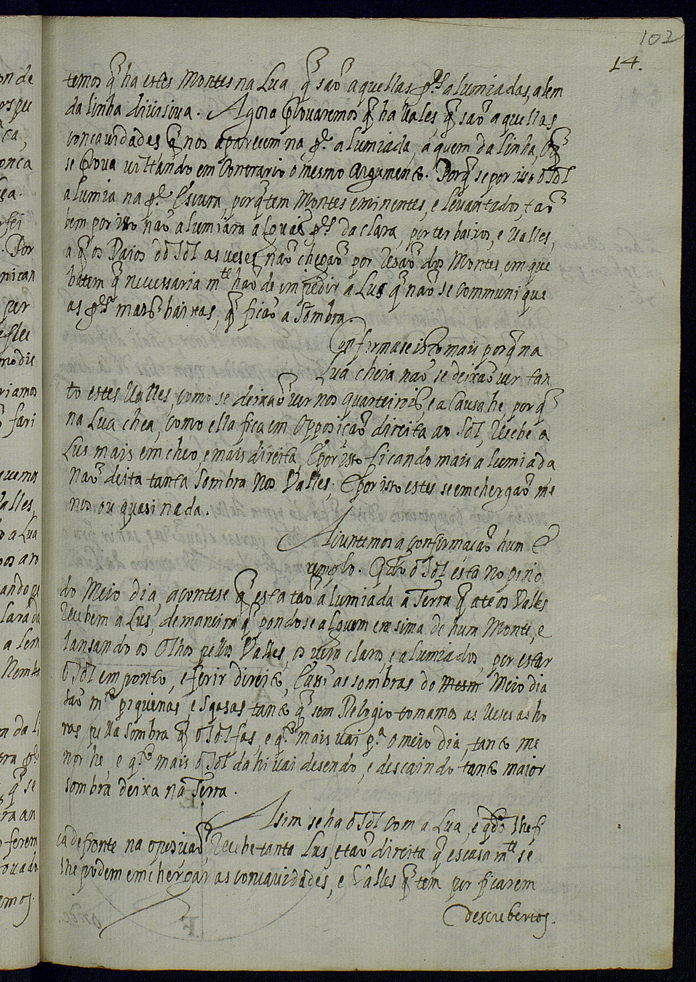 102
14.
temos q̃ ha estes Montes na Lua q̃ saõ aquellas p.tes alumiadas, alem
da linha diuisiua. Agora prouaremos q̃ ha Vales q̃ saõ aquellas
concauidades q̃ nos aparecem na p.te alumiada, aquem da linha, o q̃
se proua uiltando em Contrario o mesmo argumento. Porq̃ se por isso o Sol
alumia na p.te escura, porq̃ tem Montes eminentes, e leuantados, taõ
bem por isso naõ alumiára alguas p.tes da clara, por ter baixos, e Valles,
a q̃ os Raios do Sol as ueses naõ chegaõ por resaõ dos Montes, em que
batem q̃ necessaria m.te haõ de impedir a Lus q̃ naõ se communique
as p.tes mais baixas, q̃ ficaõ a sombra.
Confirmase isto mais porq̃ na
Lua cheia naõ se deixaõ uer tan
to estes Valles, como se deixaõ uer nos quarteirois, e a causa he, porq̃
na Lua chea, como ella fica em opposiçaõ direita ao Sol, recebe a
Lus mais em cheo e mais direita, e por isto ficando mais alumiada
naõ deita tanta sombra nos Valles. E por isto estes se emchergaõ me
nos ou quasi nada.
Aiuntemos a confirmacaõ hum e
xemplo. Q.do o Sol está no pino
do Meio dia, acontese q̃ esta taõ alumiada a Terra q̃ ate os Valles
recebem a Lus, de maneira q̃ pondose alguem em sima de hum Monte, e
lansando os olhos pellos Valles, os uera claros e alumiados, por estar
o Sol em ponto, e ferir direito, e assi as sombras do Meio dia
saõ m.to piquenas e escasas tanto q̃ sem Relogio tomamos as ueses as ho
ras pella sombra q̃ o Sol fas, e q.to mais uai p.a o meio dia, tanto me
nos he e q.to mais o Sol dahi uai desendo, e descaindo tanto maior
sombra deixa na Terra.
Asim se ha o Sol com a Lua, e q.do lhe f
ca defronte na oposiçaõ, recebe tanta Lus, e taõ direita q̃ escasa m.te se
lhe podem emchergar as concauidades, e Valles q̃ tem por ficarem
descubertos.